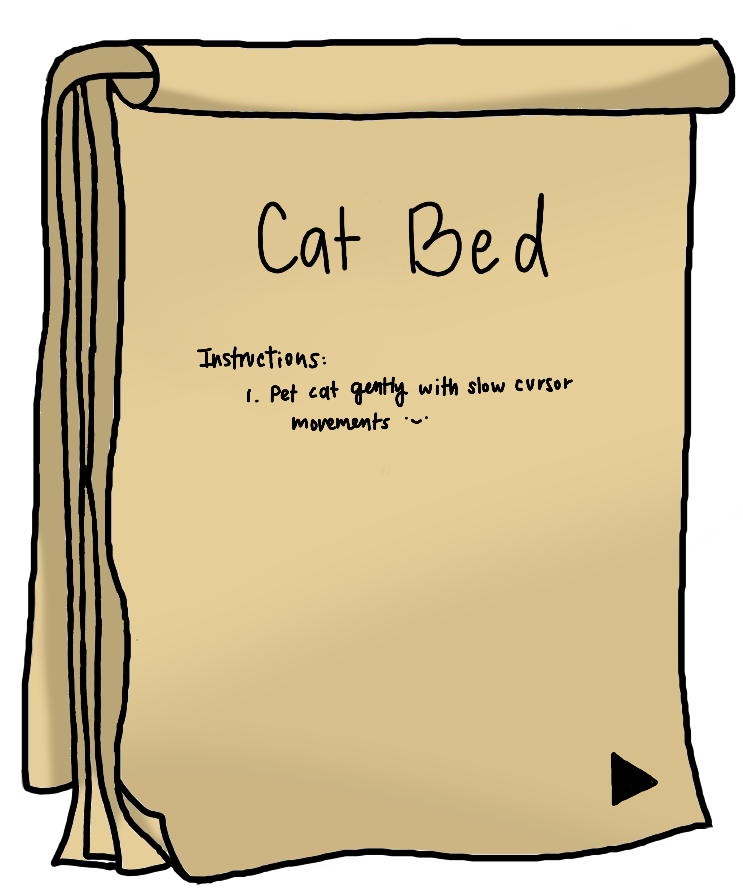 Cat Bed
Instructions:
1. Pet cat gently with slow cursor
movements